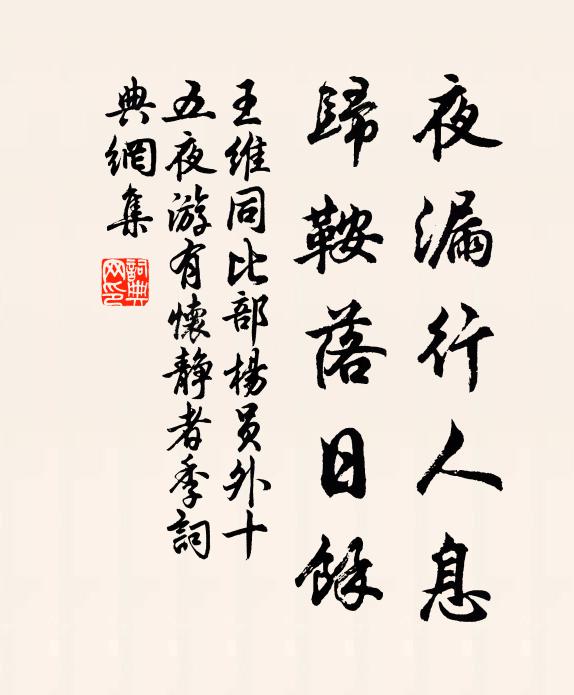 夜漏行人息
歸鞍落日餘
王維同比部楊員外十
五夜游有懷静者季詞
典網集
詞典
网印